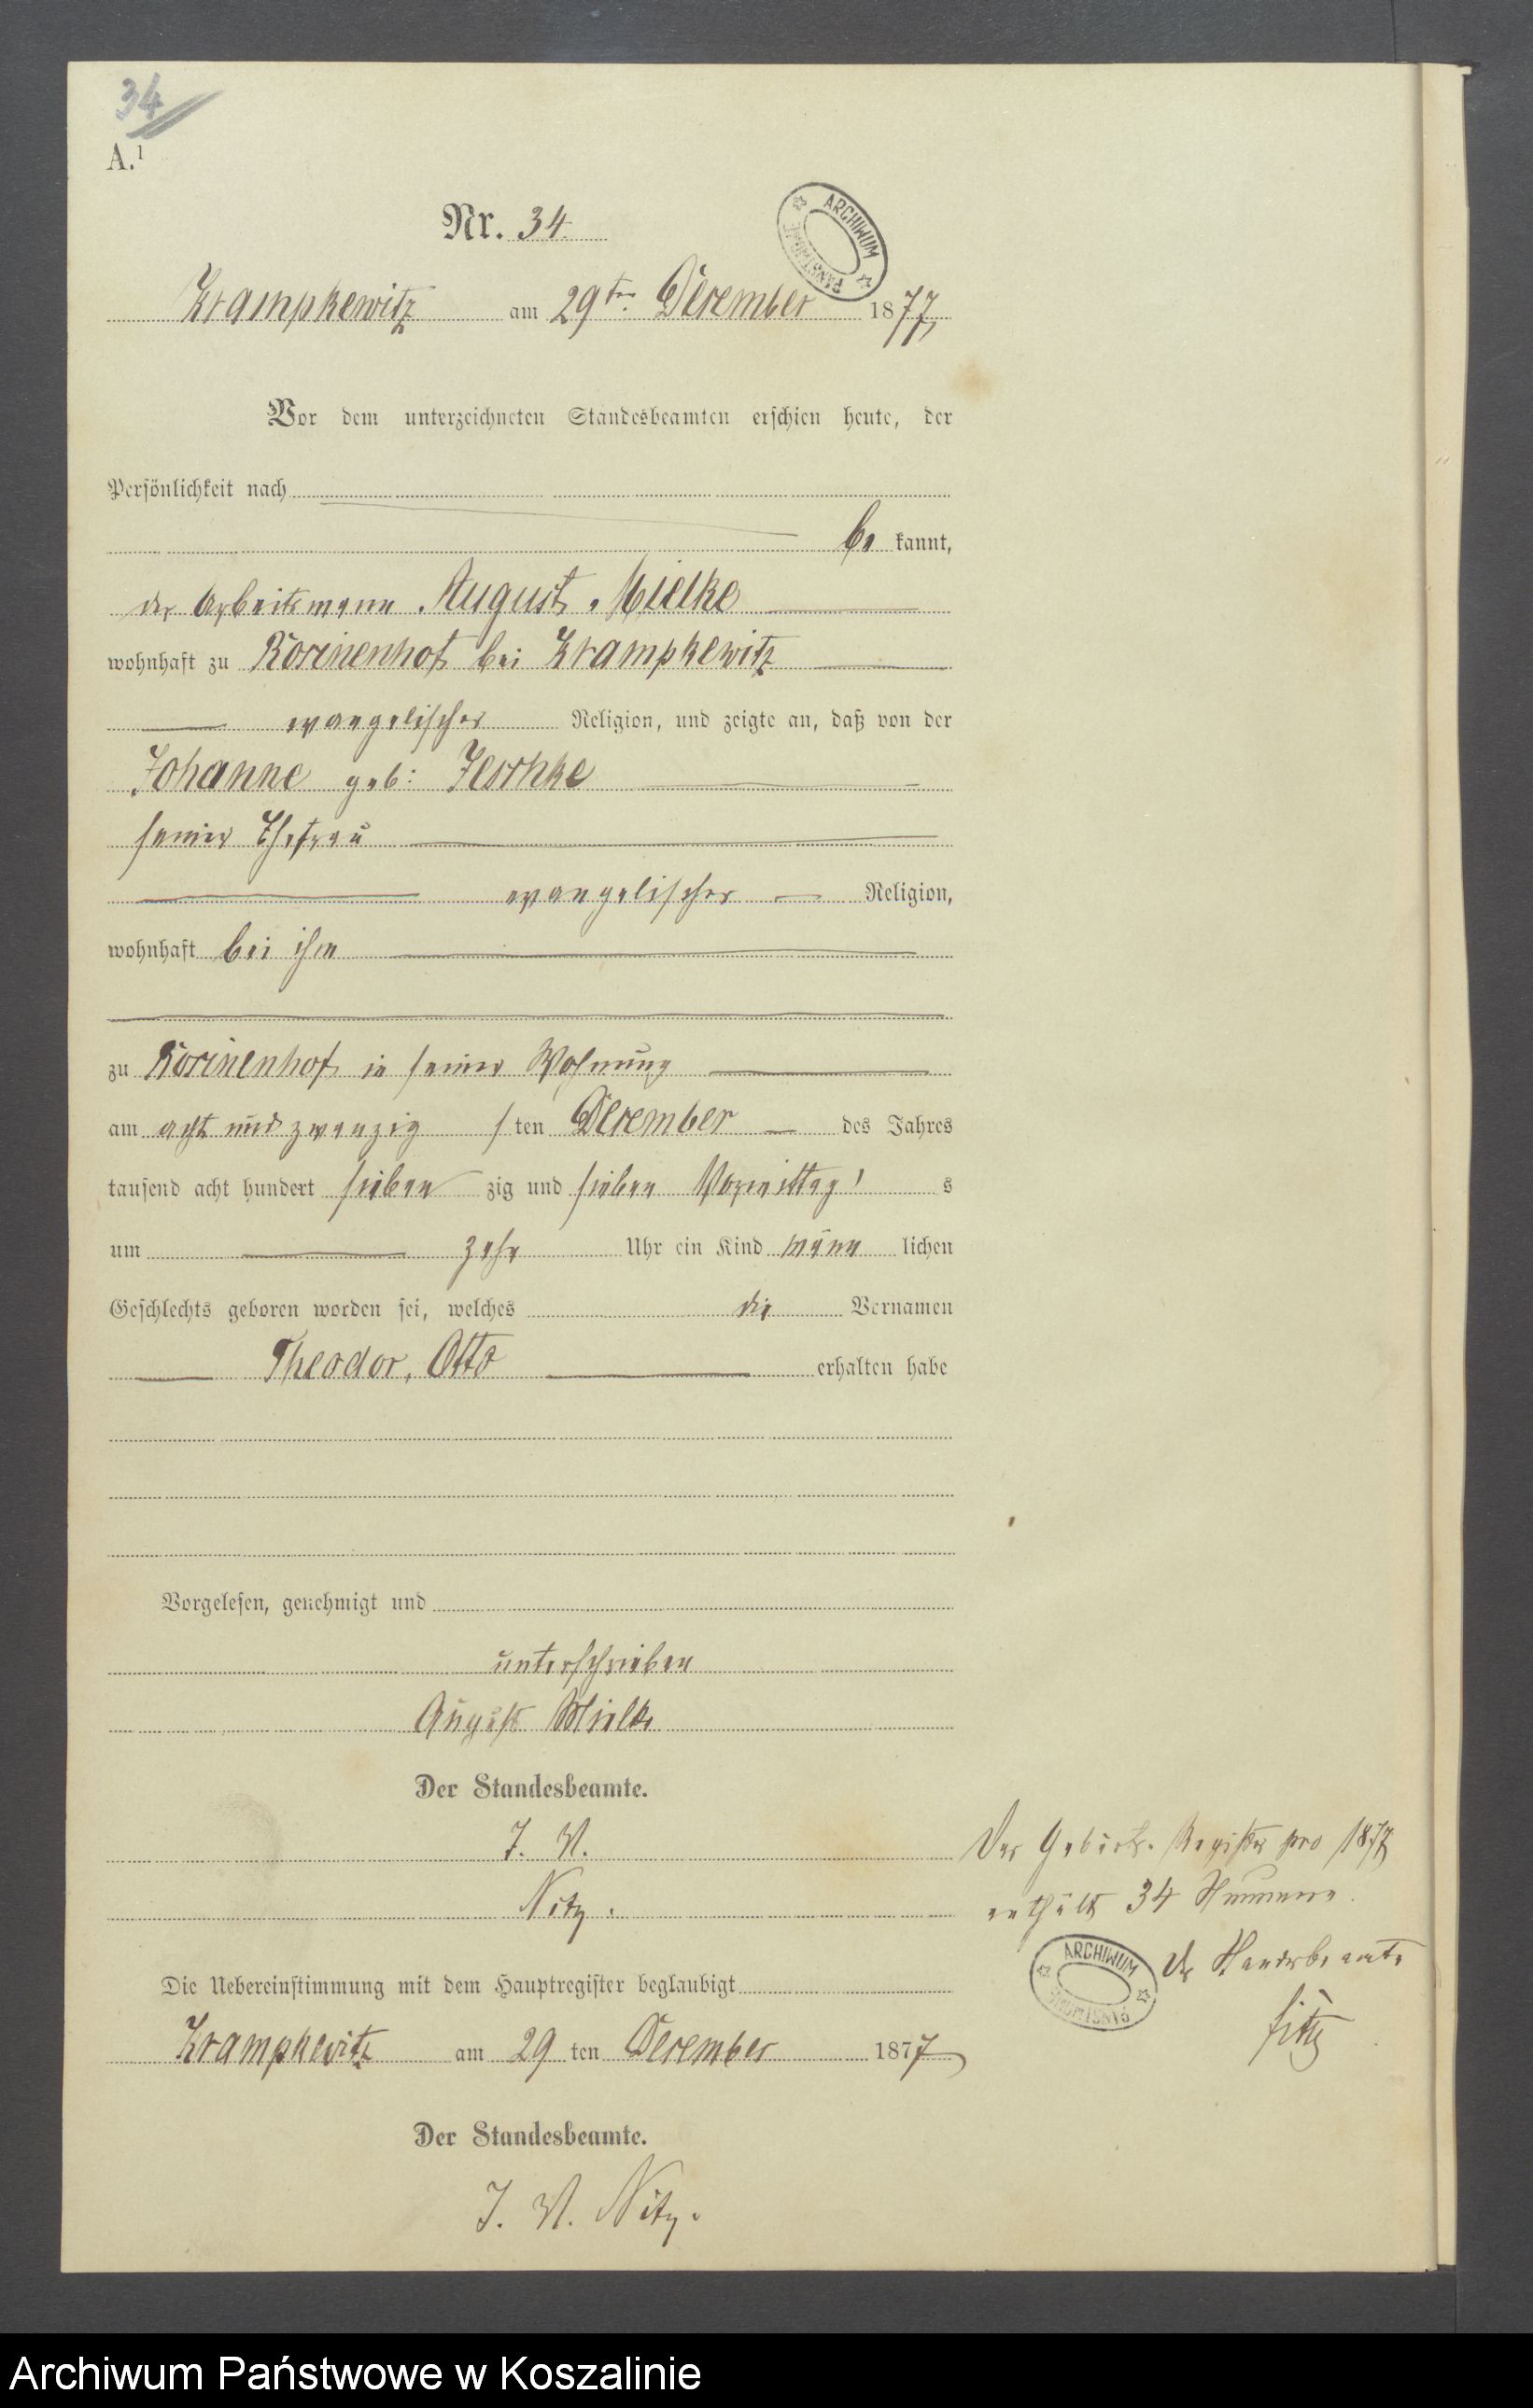 34
A.¹
Nr. 34.
ARCHIWUM PAŃSTWOWE
Krampkewitz am 29ten December 1877
Vor dem unterzeichneten Standesbeamten erschien heute, der
Persönlichkeit nach
be kannt,
der Arbeitsmann August Mielke
wohnhaft zu bei Krampkewitz
evangelischer Religion, und zeigte an, daß von der
Johanne geb: Jeschke
seiner Ehefrau
evangelischer Religion,
wohnhaft bei ihm
zu in seiner Wohnung
am acht und zwanzig sten December des Jahres
tausend acht hundert sieben zig und sieben Vormittag s
um zehn Uhr ein Kind männ lichen
Geschlechts geboren worden sei, welches die Vornamen
Theodor, Otto erhalten habe
Vorgelesen, genehmigt und
unterschrieben
August Mielke
Der Standesbeamte.
J. V.
Nitz.
Das Geburts-Register pro 1877
enthält 34 Nummern.
Der Standesbeamte
ARCHIWUM PAŃSTWOWE
Die Uebereinstimmung mit dem Hauptregister beglaubigt
Krampkewitz am 29 ten December 1877
Der Standesbeamte.
J. V. Nitz.
Archiwum Państwowe w Koszalinie